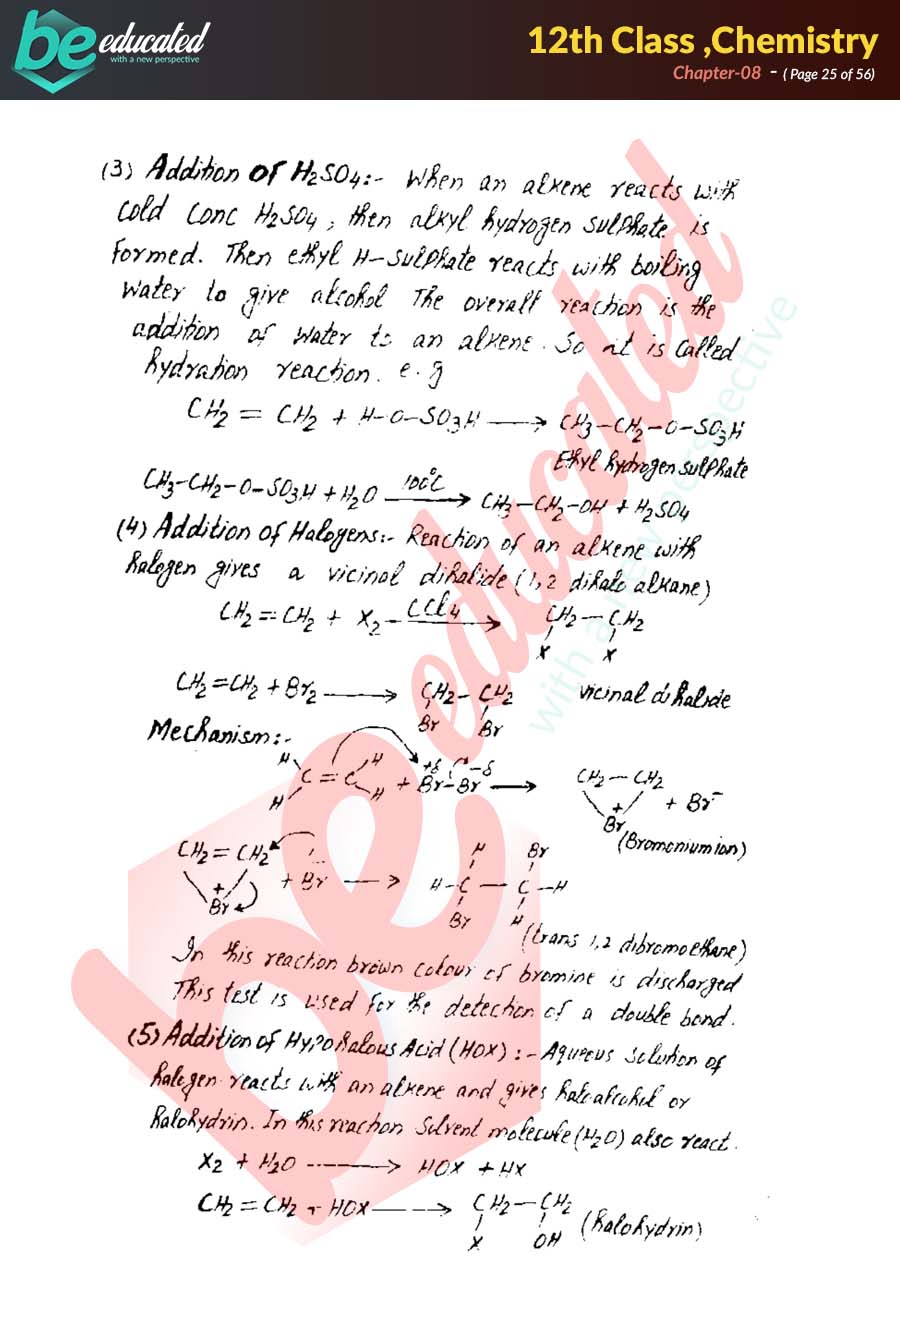 be educated
with a new perspective
12th Class ,Chemistry
Chapter-08 - ( Page 25 of 56)
(3) Addition of H2SO4:- When an alkene reacts with
cold conc H2SO4, then alkyl hydrogen sulphate is
formed. Then ethyl H-sulphate reacts with boiling
water to give alcohol The overall reaction is the
addition of water to an alkene. So it is called
hydration reaction. e.g
CH2 = CH2 + H-O-SO3H ⟶ CH3-CH2-O-SO3H
Ethyl hydrogen sulphate
CH3-CH2-O-SO3H + H2O 100°C ⟶ CH3-CH2-OH + H2SO4
(4) Addition of Halogens:- Reaction of an alkene with
halogen gives a vicinal dihalide (1,2 dihalo alkane)
CH2=CH2 + X2 CCl4 ⟶ CH2-CH2
X X
CH2=CH2 + Br2 ⟶ CH2-CH2 vicinal dihalide
Br Br
Mechanism:-
H H
C = C + +δ Br-Br -δ ⟶ CH2-CH2 + Br-
H H
+
Br (Bromonium ion)
CH2 = CH2 + Br ⟶ H-C-C-H
H Br
+
Br
Br H
(trans 1,2 dibromoethane)
In this reaction brown colour of bromine is discharged
This test is used for the detection of a double bond.
(5) Addition of Hypohalous Acid (HOX) :- Aqueus solution of
halogen reacts with an alkene and gives haloalcohol or
halohydrin. In this reaction Solvent molecule (H2O) also react.
X2 + H2O ⟶ HOX + HX
CH2 = CH2 + HOX ⟶ CH2-CH2 (halohydrin)
X OH
be educated
with a new perspective